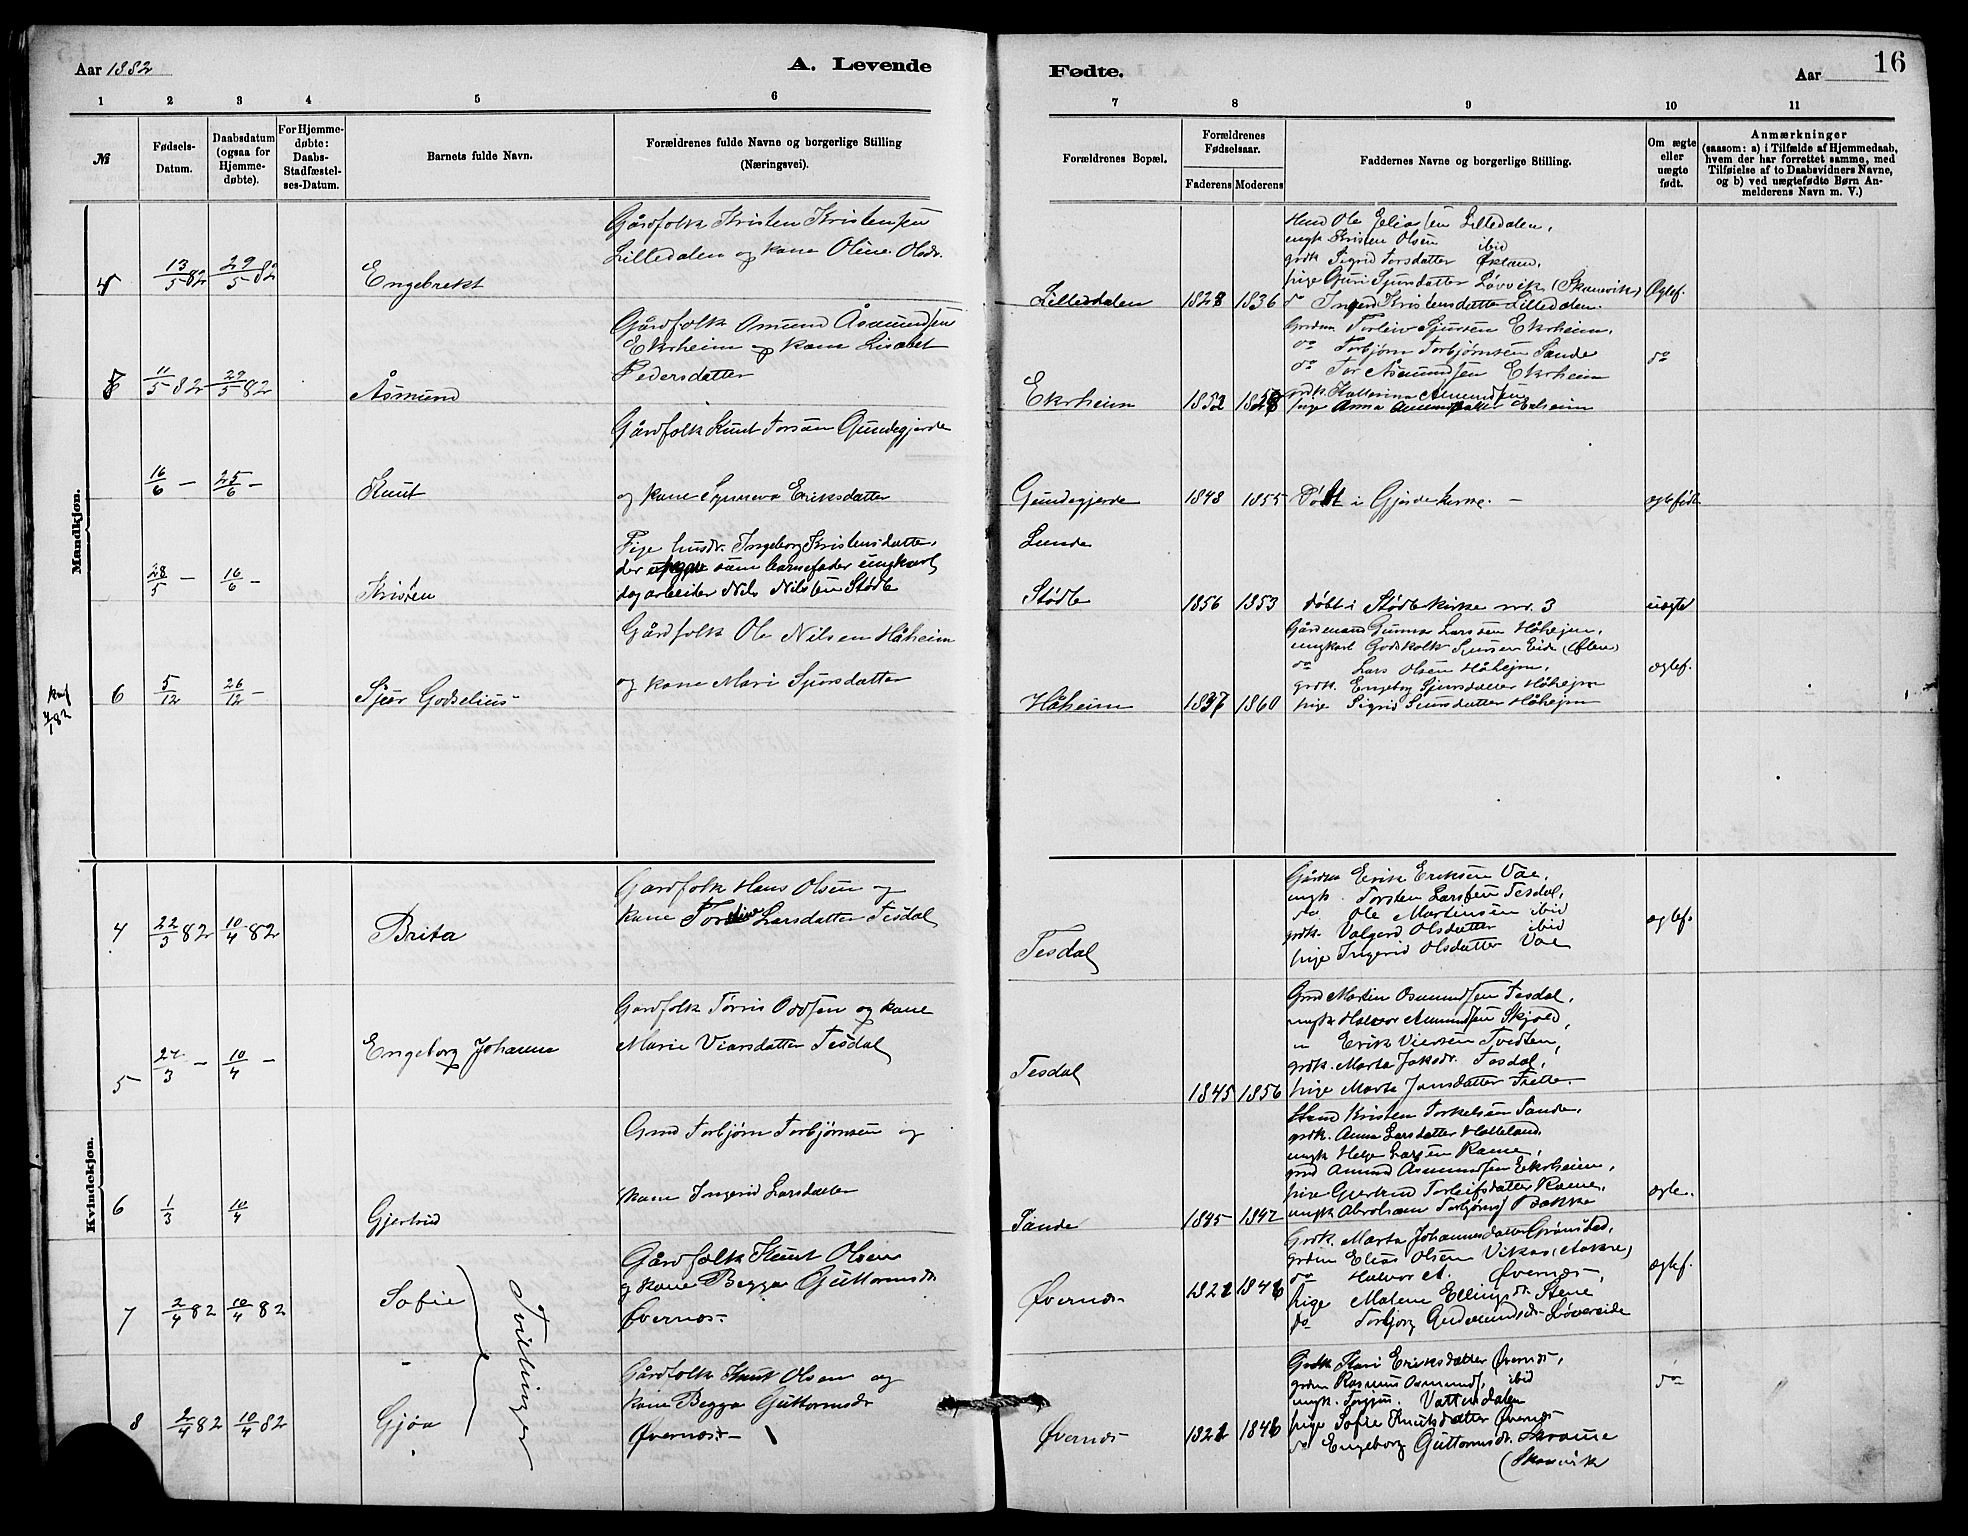 Aar 1882
A. Levende
Fødte.
Aar
16
1 2 3 4 5 6 7 8 9 10 11
№
Fødsels-
Datum.
Daabsdatum
(ogsaa for
Hjemme-
døbte).
For Hjemme-
døbte:
Daabs-
Stadfæstel-
ses-Datum.
Barnets fulde Navn.
Forældrenes fulde Navne og borgerlige Stilling
(Næringsvei).
Forældrenes Bopæl.
Forældrenes
Fødselsaar.
Faderens Moderens
Faddernes Navne og borgerlige Stilling.
Om ægte
eller
uægte
født.
Anmærkninger
(saasom: a) i Tilfælde af Hjemmedaab,
hvem der har forrettet samme, med
Tilføielse af to Daabsvidners Navne,
og b) ved uægtefødte Børn An-
melderens Navn m. V.)
Mandkjøn.
13/5 82 29/5 82
Engebrekt
Gårdfolk Kristen Kristensen
Lilledalen og kone Olene Olsdr.
Lilledalen
1828 1836
Ole Eliassen Lilledalen,
ungk Kristen Olsen ibid
grdk Sigrid Torsdatter Økland,
pige Guri Sjursdatter Løvvik (Skånevik)
do Inger Kristensdatter Lilledalen.
Ægtef.
11/5 82 29/5 82
Åsmund
Gårdfolk Amund Åsmundsen
Ekrheim og kone Lisabet
Pedersdatter
Ekrheim
1852
Torleiv Sjursen Ekrheim,
do Torbjørn Torbjørnsen Sande
do Tor Åsmundsen Ekrheim
do
16/6 — 25/6 —
Knut
Gårdfolk Knut Torsen Gundegjerde
og kone Synneva Eriksdatter
Gundegjerde
1848 1855
Døbt i Gjerde kirke. —
ægtefødt
28/5 — 16/6 —
Kristen
Pige husdr. Ingeborg Kristensdatter,
der som barnefader ungkarl
dagarbeider Nils Nilssen Stødle
Lunde
Stødle
1856 1853
døbt i Stødle kirke nr. 3
uægte
6 5/12 26/12 —
Sjur Godselius
Gårdfolk Ole Nilsen Håheim
og kone Mari Sjursdatter
Håheim
1837 1860
Gårdmand Gunnar Larssen Håhejm,
ungkarl Godskalk Sjursen Eide (Ølen)
do Lars Olsen Håhejm,
grdk. Engeborg Sjursdatter Håhejm
pige Sigrid Sjursdatter Håhejm
ægtef.
Kvindekjøn.
4 22/3 82 10/4 82
Brita
Gårdfolk Hans Olsen og
kone Larsdatter Tesdal
Tesdal
Gårdm Erik Eriksen Vae,
ungk. Torsten Larssen Tesdal,
do. Ole Martensen ibid
grdk. Valgerd Olsdatter ibid
pige Ingerid Olsdatter Vae
ægtef.
5 27/3 — 10/4 —
Engeborg Johanna
Gårdfolk Tørris Oddsen og kone
Marie Viersdatter Tesdal
Tesdal
1845 1856
Grmd Martin Osmundsen Tesdal,
ungk Halvor Amundsen Skjold,
" Erik Viersen Tvedten,
grdk. Marta Jakobdr. Tesdal,
pige Marta Jansdatter Frette.
6 1/3 10/4
Gjertrud
Grmd Torbjørn Torbjørnsen og
kone Ingerid Larsdatter
Sande
1845 1847
Kristen Torkelsen Sande,
grdk. Anna Larsdatter Hatteland.
ungk Helge Larsen Ramne,
grmd Amund Åsmundsen Ekrheim,
pige Gjertrud Torleifsdatter Ramne,
ungk Abraham Bakka
ægte.
7 2/4 82 10/4 82
Sofie
Tvillinger
Gårdfolk Knut Olsen
og kone Begga Guttormsdr.
Øvernes.
Øvernes
1821 1841
Grdk. Marta Johannesdatter Grønstad,
grdm Elias Olsen Vikas (Aakre)
do Halvor A. Øvernes,
pige Malene Ellingsdr. Stene
do Torbjørg Løvereide
ægtef.
8 2/4 82 10/4 82
Gjøa
Gårdfolk Knut Olsen og
kone Begga Guttormsdr.
Øvernes. —
Øvernes
Grdk Kari Eriksdatter Øvernes,
grdm Rasmus Osmunds. ibid
ungk. Torgjus Vattendalen
pige Sofie Knutsdatter Øvernes
do Engeborg Guttormsdr.
(Skånevik
do